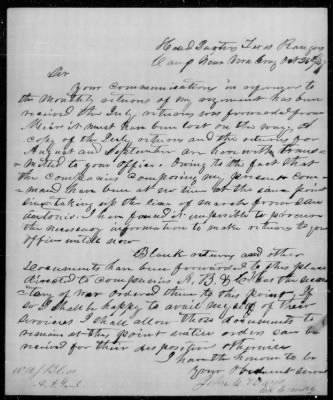 Head Quarters Texas Rangers
Camp Near Vera Cruz Oct 26th
Sir
Your communication in refference to
the Monthly returns of my regiment has been
received the July returns was forwarded from
Mier it must have been lost on the way, a
copy of the July return and the returns for
August and September are herewith trans-
mitted to your office. Owing to the fact that
the companies composing my present com-
mand have been at no time at the same point
since taking up the line of march from San
Antonio. I have found it impossible to procure
the necessary information to make returns to your
office until now
Blank returns and other
documents have been forwarded to this place
directed to companies A, B & C has the secre-
tary of war ordered them to this point If
so I shall be happy to avail myself of their
services I shall allow those documents to
remain at this point until orders can be
received for their disposition otherwise
I have the honour to be
Your Obedient servt
John C Hays
W W J Bliss
A. A. Genl